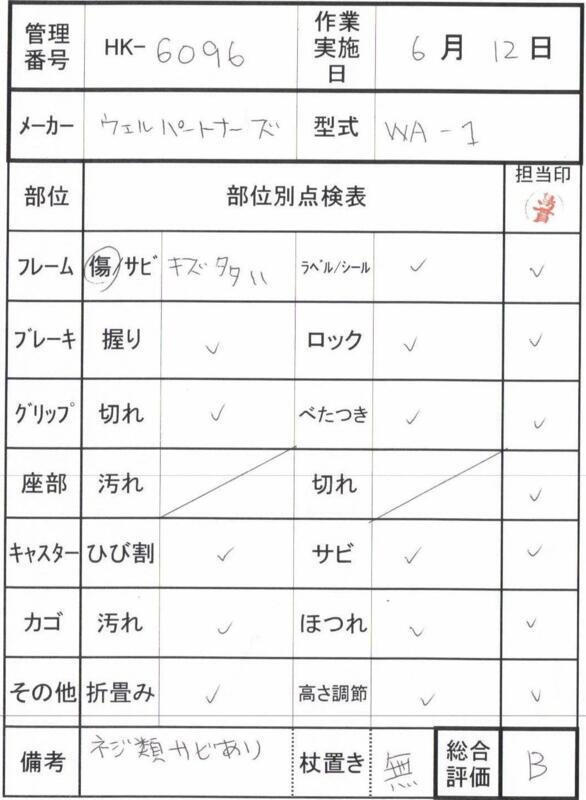 管理番号 HK-6096 作業実施日 6月12日
メーカー ウェルパートナーズ 型式 WA-1
部位 部位別点検表 担当印
フレーム 傷/サビ キズ ラベル/シール ✓ ✓
ブレーキ 握り ✓ ロック ✓ ✓
グリップ 切れ ✓ べたつき ✓ ✓
座部 汚れ 切れ ✓
キャスター ひび割 ✓ サビ ✓ ✓
カゴ 汚れ ✓ ほつれ ✓ ✓
その他 折畳み ✓ 高さ調節 ✓ ✓
備考 ネジ類サビあり 杖置き 無 総合評価 B